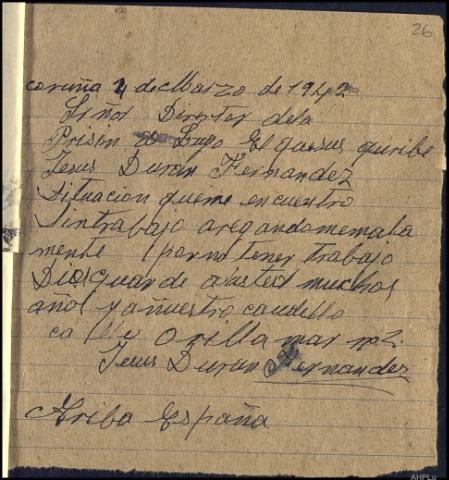 26
coruña 4 de Marzo de 1942
Siñol Dirertor dela
Prisin de Lugo El quesus quribe
Jesus Duran Fernandez
Situacion queme encuentro
Sintrabajo aregandomemala
mente pornotener trabajo
Dios guarde austed muchos
años y añuestro caudello
calle Orilla mar nº 2.
Jesus Duran Fernandez
Ariba España
AHPLu